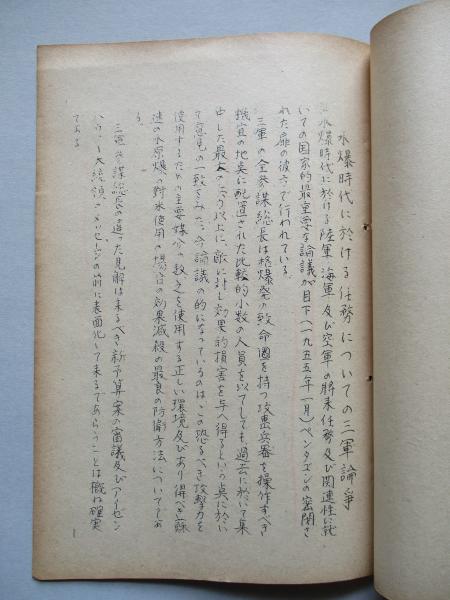 水爆時代に於ける任務についての三軍論爭
水爆時代に於ける陸軍海軍及び空軍の將来任務及び関連性に就
いての国家的最重要な論議が目下(一九五五年一月)ペンタゴンの密閉さ
れた扉の彼方で行われている。
三軍の全参謀総長は核爆発の致命圏を持つ攻撃兵器を操作すべき
機宜の地点に配置された比較的小数の人員を以てしても、過去に於いて集
中した最大の 以上に、敵に対し効果的損害を与へ得るという点に於い
て意見の一致をみた。今、論議の的になっているのは、この恐るべき攻撃力を
使用するための主要媒介の数、之を使用する正しい環境及びあり得べき蘇
連の水原爆の対米使用の場合の効果減殺の最良の防衛方法についてであ
る。
三軍参謀総長の違った見解は来るべき新予算案の審議及びアイゼン
ハウアー大統領のメッセージの前に表面化して来るであらうことは概ね確実
である
1